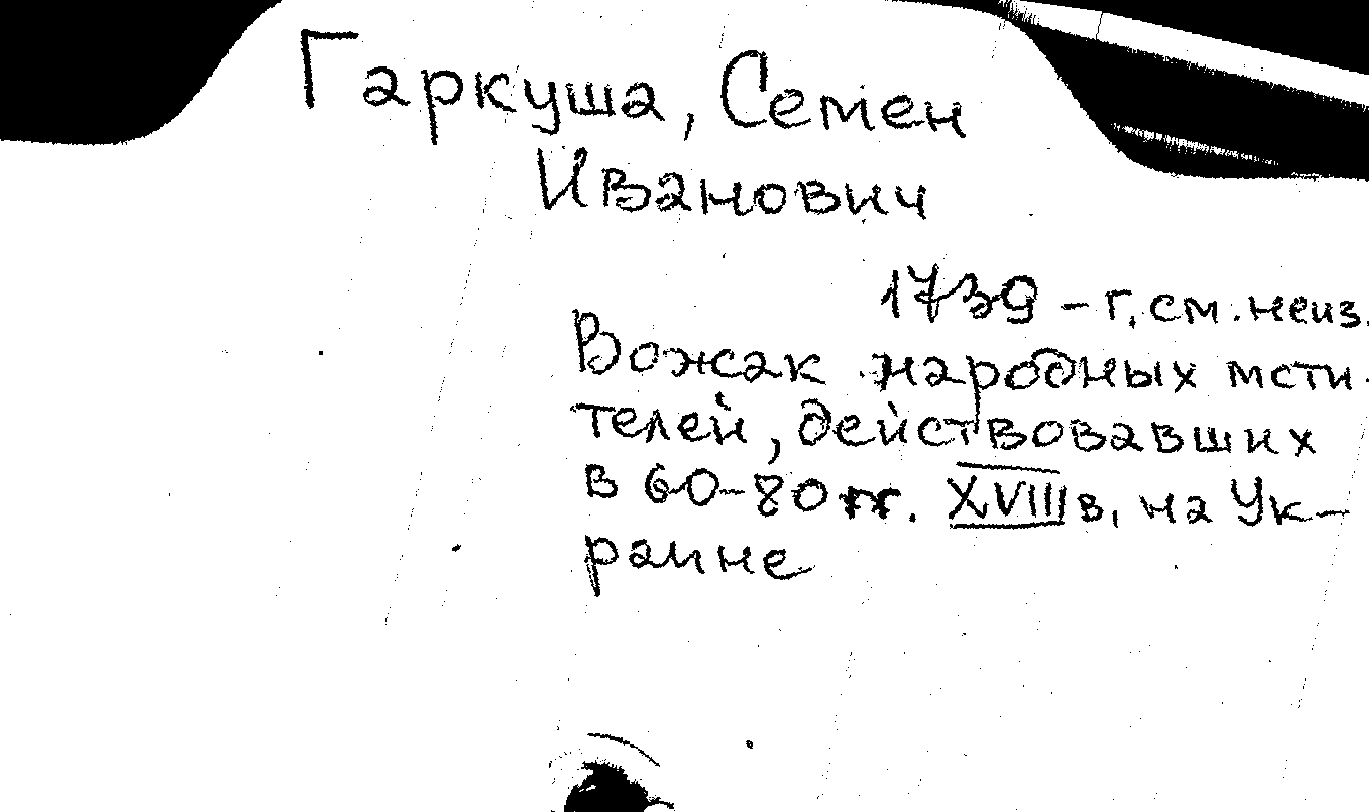 Гаркуша, Семен
Иванович
1739 – г. см. неиз.
Вожак народных мсти-
телей, действовавших
в 60-80 гг. XVIII в. на Ук-
раине